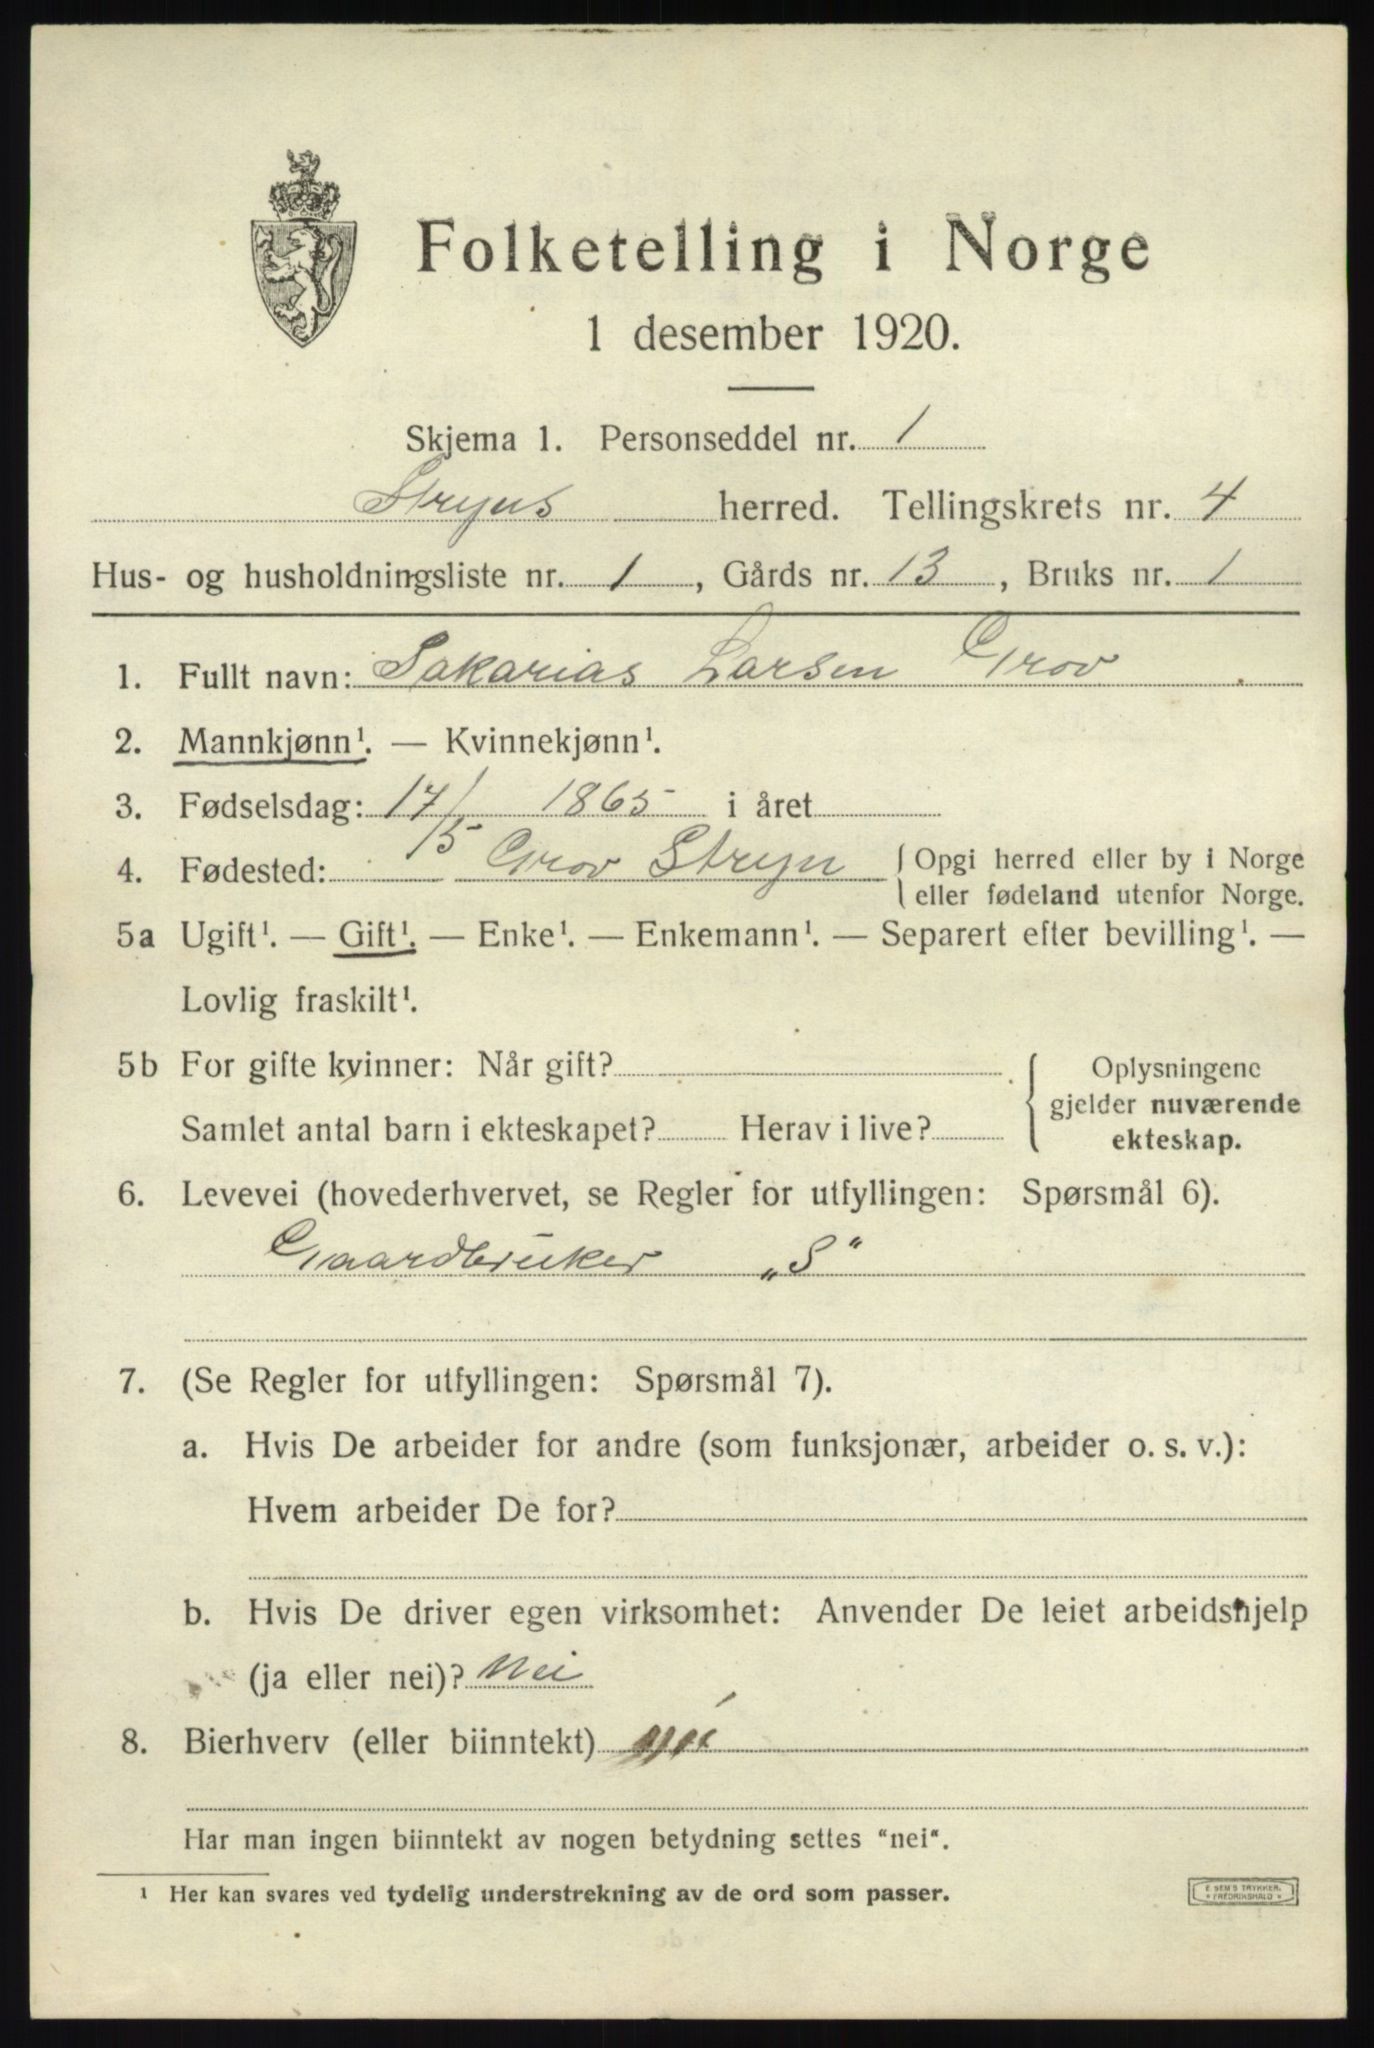 Folketelling i Norge
1 desember 1920.
Skjema 1. Personseddel nr. 1
Stryns herred. Tellingskrets nr. 4
Hus- og husholdningsliste nr. 1, Gårds nr. 13, Bruks nr. 1
1. Fullt navn: Sakarias Larsen Grov
2. Mannkjønn¹. — Kvinnekjønn¹.
3. Fødselsdag: 17/5 1865 i året
4. Fødested: Grov Stryn { Opgi herred eller by i Norge
eller fødeland utenfor Norge.
5a Ugift¹. — Gift¹. — Enke¹. — Enkemann¹. — Separert efter bevilling¹. —
Lovlig fraskilt¹.
5b For gifte kvinner: Når gift?
Samlet antal barn i ekteskapet? Herav i live?
{ Oplysningene
gjelder nuværende
ekteskap.
6. Levevei (hovederhvervet, se Regler for utfyllingen: Spørsmål 6).
Gaardbruker „S“
7. (Se Regler for utfyllingen: Spørsmål 7).
a. Hvis De arbeider for andre (som funksjonær, arbeider o. s. v.):
Hvem arbeider De for?
b. Hvis De driver egen virksomhet: Anvender De leiet arbeidshjelp
(ja eller nei)? Nei
8. Bierhverv (eller biinntekt) nei
Har man ingen biinntekt av nogen betydning settes "nei".
¹ Her kan svares ved tydelig understrekning av de ord som passer.
E. SEM'S TRYKKERI
FREDRIKSHALD